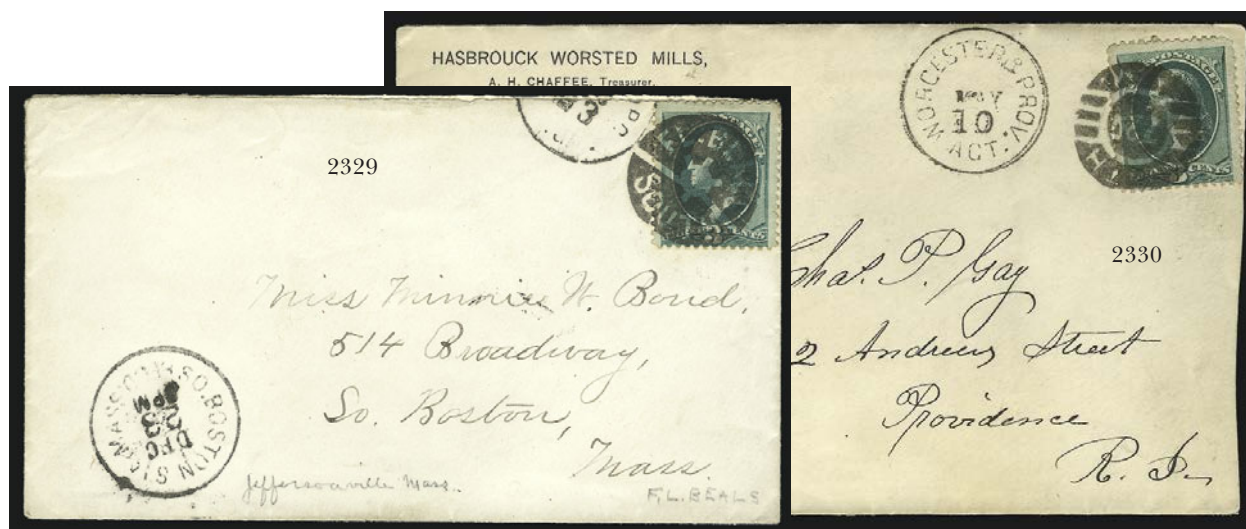 HASBROUCK WORSTED MILLS,
A. H. CHAFFEE, Treasurer.
WORCESTER & PROV.
MAY
10
W ACT.
2330
Chas. P. Gay
2 Andrews Street
Providence
R. I.
2329
Miss Minnie W. Bond,
514 Broadway,
So. Boston,
Mass.
SO. BOSTON STA. MASS.
DEC
23
PM
Jeffersonville Mass.
F.L. BEALS